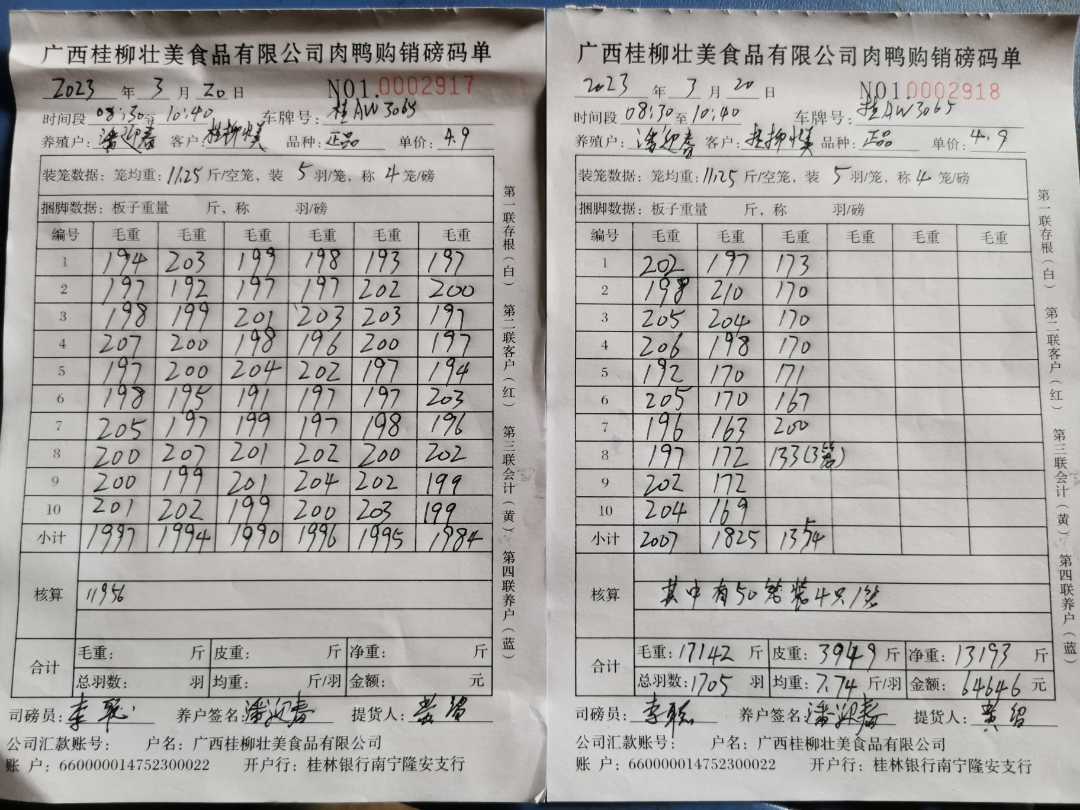 广西桂柳壮美食品有限公司肉鸭购销磅码单
2023 年 3 月 20 日 NO1.0002917
时间段 08:30至 10:40 车牌号：桂AW3065
养殖户：潘迎春 客户：桂柳壮美 品种：正品 单价：4.9
装笼数据：笼均重：11.25 斤/空笼，装 5 羽/笼，称 4 笼/磅
捆脚数据：板子重量 斤，称 羽/磅
编号 毛重 毛重 毛重 毛重 毛重 毛重
1 194 203 199 198 193 197
2 197 192 197 197 202 200
3 198 199 201 203 203 197
4 207 200 198 196 200 197
5 197 200 204 202 197 194
6 198 195 191 197 197 203
7 205 197 199 197 198 196
8 200 207 201 202 200 202
9 200 199 201 204 202 199
10 201 202 199 200 203 199
小计 1997 1994 1990 1996 1995 1984
核算 11956
合计 毛重： 斤 皮重： 斤 净重： 斤
总羽数： 羽 均重： 斤/羽 金额： 元
司磅员：李聪 养户签名：潘迎春 提货人：
公司汇款账号： 户名：广西桂柳壮美食品有限公司
账 户：660000014752300022 开户行：桂林银行南宁隆安支行
第一联存根（白） 第二联客户（红） 第三联会计（黄） 第四联养户（蓝）
广西桂柳壮美食品有限公司肉鸭购销磅码单
2023 年 3 月 20 日 NO1.0002918
时间段 08:30至 10:40 车牌号：桂AW3065
养殖户：潘迎春 客户：桂柳壮美 品种：正品 单价：4.9
装笼数据：笼均重：11.25 斤/空笼，装 5 羽/笼，称 4 笼/磅
捆脚数据：板子重量 斤，称 羽/磅
编号 毛重 毛重 毛重 毛重 毛重 毛重
1 202 197 173
2 198 210 170
3 205 204 170
4 206 198 170
5 192 170 171
6 205 170 167
7 196 163 200
8 197 172 133(3笼)
9 202 172
10 204 169
小计 2007 1825 1354
核算 其中有50笼装4只1笼
合计 毛重：17142 斤 皮重：3949 斤 净重：13193 斤
总羽数：1705 羽 均重：7.74 斤/羽 金额：64646 元
司磅员：李聪 养户签名：潘迎春 提货人：
公司汇款账号： 户名：广西桂柳壮美食品有限公司
账 户：660000014752300022 开户行：桂林银行南宁隆安支行
第一联存根（白） 第二联客户（红） 第三联会计（黄） 第四联养户（蓝）